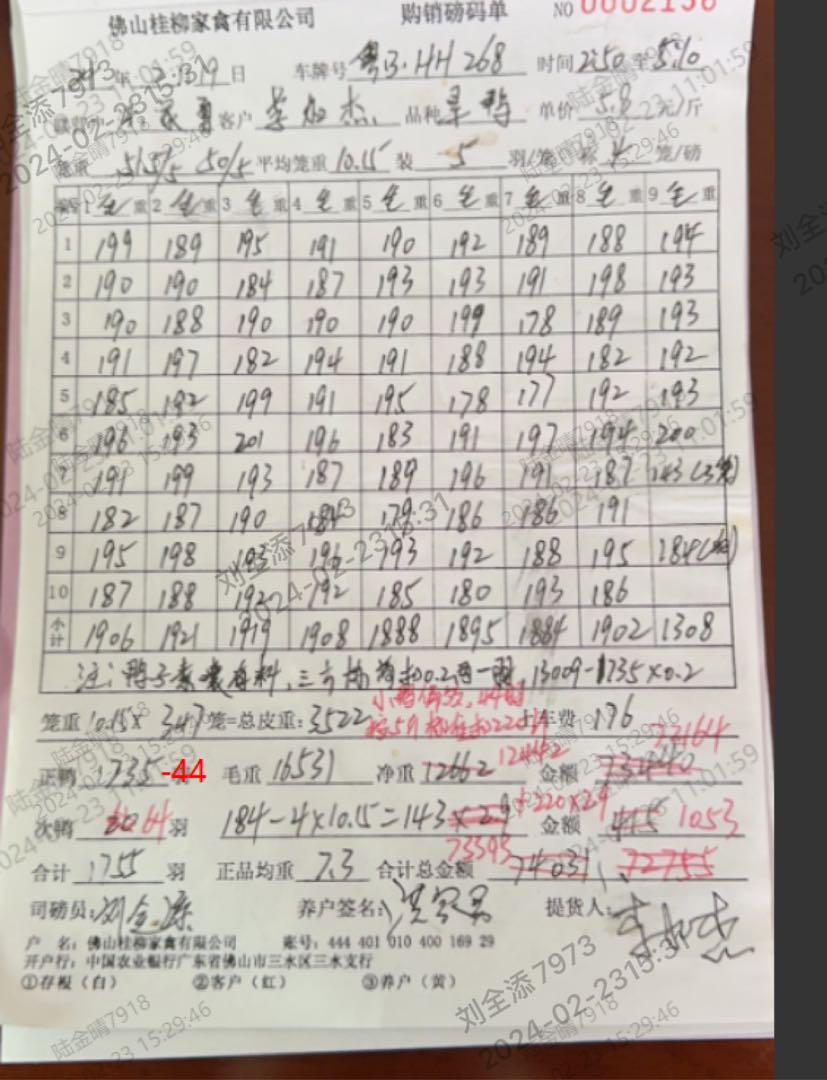 佛山桂柳家禽有限公司 购销磅码单 NO 0002136
年 2.13 19 日 车牌号 粤B·HH 268 时间 2:50 至 5:10
客户 李 杰 品种 旱鸭 单价 5.8 元/斤
515/5 50/5 平均笼重 10.15 装 5 羽/笼 称 4 笼/磅
1 毛 重 2 毛 重 3 毛 重 4 毛 重 5 毛 重 6 毛 重 7 毛 重 8 毛 重 9 毛 重
1 199 189 195 191 190 192 189 188 194
2 190 190 184 187 193 193 191 198 193
3 190 188 190 190 190 199 178 189 193
4 191 197 182 194 191 188 194 182 192
5 185 192 199 191 195 178 177 192 193
6 196 193 201 196 183 191 197 194 200
7 191 199 193 187 189 196 191 187 143(3笼)
8 182 187 190 184 179 186 186 191
9 195 198 193 196 193 192 188 195 184(
10 187 188 192 192 185 180 193 186
小计 1906 1921 1919 1908 1888 1895 1884 1902 1308
注:鸭子 有料, 0.2 13009-1735×0.2
笼重 10.15× 347 笼=总皮重: 3522 上车费 176
小鸭
73164
12442
正鸭 1735 -44 羽 毛重 16531 净重 12662 金额
次鸭 20 64 羽 184-4×10.15=143 ×2.9 +220×2.9 金额 415 1053
73393
合计 1755 羽 正品均重 7.3 合计总金额 74031 72755
司磅员: 刘全添 养户签名: 提货人: 李 杰
户 名: 佛山桂柳家禽有限公司 账号: 444 401 010 400 169 29
开户行: 中国农业银行广东省佛山市三水区三水支行
①存根(白) ②客户(红) ③养户(黄)
陆金晴7918
2024-02-23 15:29:46
刘全添7973
2024-02-23 15:31